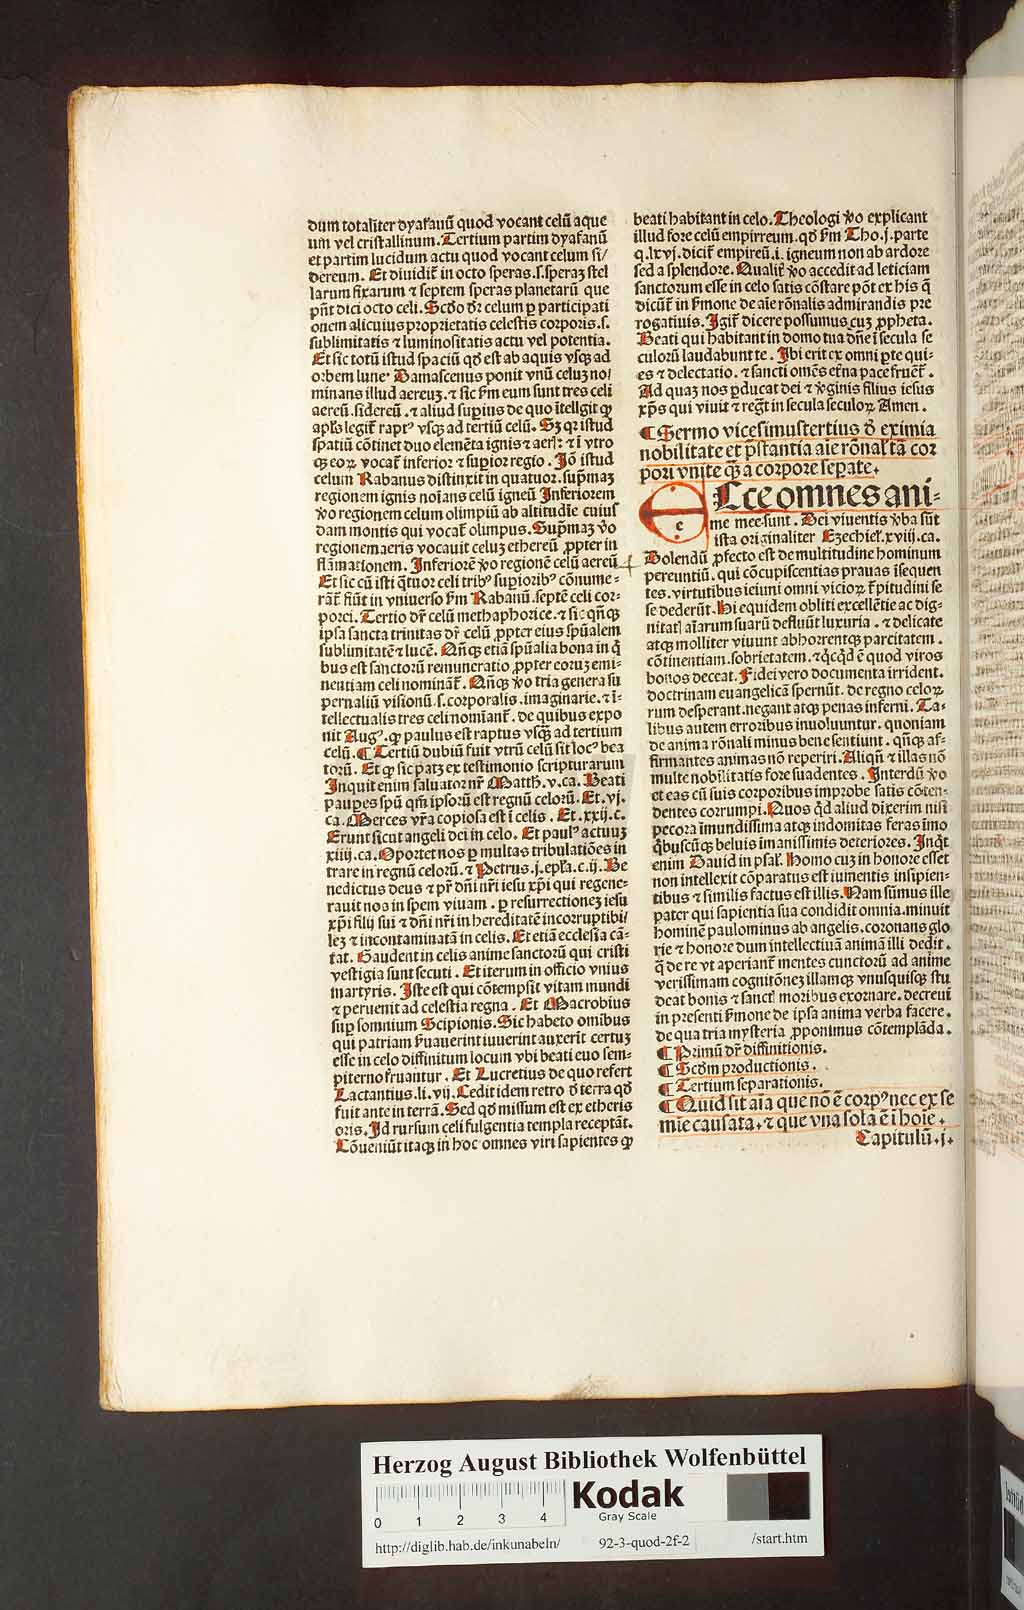 dum totaliter dyafanū quod vocant celū aque
um vel cristallinum. Tertium partim dyafanū
et partim lucidum actu quod vocant celum si/
dereum. Et diuidit̄ in octo speras.s.speraȝ stel
larum fixarum ⁊ septem speras planetarū que
pn̄t dici octo celi. Scd̓o dr̄ celum ꝑ participati
onem alicuius proprietatis celestis corporis.s.
sublimitatis ⁊ luminositatis actu vel potentia.
Et sic totū istud spaciū qd̓ est ab aquis vsqȝ ad
orbem lune. Damascenus ponit vnū celuȝ no/
minans illud aereuȝ.⁊ sic ẜm eum sunt tres celi
aereū.sidereū.⁊ aliud supius de quo ītellgit̄ ꝙ
apl̓s legit̄ raptꝰ vsqȝ ad tertiū celū. Sȝ qꝛ istud
spatiū cōtinet duo elemēta ignis ⁊ aer̄: ⁊ ī vtro
qȝ eoꝝ vocat̄ inferior ⁊ supior regio. Iō istud
celum Rabanus distinxit in quatuor.sup̄maȝ
regionem ignis noīans celū igneū Inferiorem
v̓o regionem celum olimpiū ab altitudīe cuius
dam montis qui vocat̄ olimpus. Sup̄maȝ v̓o
regionem aeris vocauit celuȝ ethereū ꝓpter in
flāmationem. Inferiorē v̓o regionē celū aereū
Et sic cū isti q̄tuor celi tribꝰ supioribꝰ cōnume-
rāt̄ fiūt in vniuerso ẜm Rabanū.septē celi cor-
porei. Tertio dr̄ celū methaphorice.⁊ sic qn̄qȝ
ipsa sancta trinitas dr̄ celū ꝓpter eius spūalem
sublimitatē ⁊ lucē. Qn̄qȝ etiā spūalia bona in q̄
bus est sanctorū remuneratio ꝓpter eoruȝ emi-
nentiam celi nominant̄. Qn̄qȝ v̓o tria genera su
pernaliū visionū.s.corporalis.imaginarie.⁊ i-
tellectualis tres celi nomīant̄. de quibus expo
nit Augꝰ.ꝙ paulus est raptus vsqȝ ad tertium
celū. ¶ Tertiū dubiū fuit vtrū celū sit locꝰ bea
torū. Et ꝙ sic patȝ ex testimonio scripturarum
Inquit enim saluator nr̄ Matth.v.ca. Beati
paupes spū qm̄ ipsorū est regnū celorū. Et.vj.
ca. Merces vr̄a copiosa est ī celis. Et.xxij.c.
Erunt sicut angeli dei in celo. Et paulꝰ actuuȝ
xiiij.ca. Oportet nos ꝑ multas tribulatiōes in
trare in regnū celorū.⁊ Petrus.j.epl̓a.c.ij. Be
nedictus deus ⁊ pr̄ dn̄i nr̄i iesu xp̄i qui regene-
rauit nos in spem viuam.ꝑ resurrectioneȝ iesu
xp̄i filij sui ⁊ dn̄i nr̄i in hereditatē incorruptibi/
leȝ ⁊ incontaminatā in celis. Et etiā ecclesia cā-
tat. Gaudent in celis anime sanctorū qui cristi
vestigia sunt secuti. Et iterum in officio vnius
martyris. Iste est qui cōtempsit vitam mundi
⁊ peruenit ad celestia regna. Et Macrobius
sup somnium Scipionis. Sic habeto omībus
qui patriam ẜuauerint iuuerint auxerint certuȝ
esse in celo diffinitum locum vbi beati euo sem-
piterno fruantur. Et Lucretius de quo refert
Lactantius.li.vij. Cedit idem retro d̓ terra qd̓
fuit ante in terrā. Sed qd̓ missum est ex etheris
oris. Id rursum celi fulgentia templa receptāt.
Cōueniūt itaqȝ in hoc omnes viri sapientes ꝙ
beati habitant in celo. Theologi v̓o explicant
illud fore celū empirreum.qd̓ ẜm Tho.j.parte
q.lxvj.dicit̄ empireū.i.igneum non ab ardore
sed a splendore. Qualit̄ v̓o accedit ad leticiam
sanctorum esse in celo satis cōstare pōt ex his q̄
dicūt̄ in ẜmone de aīe rōnalis admirandis pre
rogatiuis. Igit̄ dicere possumus cuȝ ꝓpheta.
Beati qui habitant in domo tua dn̄e ī secula se
culorū laudabunt te. Ibi erit ex omni ꝑte qui-
es ⁊ delectatio.⁊ sancti omēs et̄na pace fruēt̄.
Ad quaȝ nos ꝑducat dei ⁊ v̓ginis filius iesus
xp̄s qui viuit ⁊ regt̄ in secula seculoꝝ Amen.
¶ Sermo vicesimustertius d̓ eximia
nobilitate et p̄stantia aīe rōnal̓ tā cor
pori vnite qȝ a corpore seperate.
Ecce omnes ani-
me mee sunt. Dei viuentis v̓ba sūt
ista originaliter Ezechiel̓.xviij.ca.
Dolendū ꝓfecto est de multitudine hominum
pereuntiū.qui cōcupiscentias prauas īsequen
tes.virtutibus ieiuni omni vicioꝝ t̄pitudini se
se dederūt. Hi equidem obliti excellētie ac dig-
nitat̄ aīarum suarū defluūt luxuria.⁊ delicate
atqȝ molliter viuunt abhorrentqȝ parcitatem.
cōtinentiam.sobrietatem.⁊ qd̓qd̓ ē quod viros
bonos deceat. Fidei vero documenta irrident.
doctrinam euangelicā spernūt. de regno celoꝝ
rum desperant.negant atqȝ penas inferni. Ta-
libus autem erroribus inuoluuntur.quoniam
de anima rōnali minus bene sentiunt.qn̄qȝ af-
firmantes animas nō reperiri. Aliqn̄ ⁊ illas nō
multe nobilitatis fore suadentes. Interdū v̓o
et eas cū suis corporibus improbe satis cōten-
dentes corrumpi. Quos qd̓ aliud dixerim nisi
pecora īmundissima atqȝ indomitas feras īmo
q̄buscūqȝ beluis imanissimis deteriores. Inq̄t
enim Dauid in psal̓. Homo cuȝ in honore esset
non intellexit cōparatus est iumentis insipien-
tibus ⁊ similis factus est illis. Nam sūmus ille
pater qui sapientia sua condidit omnia.minuit
hominē paulominus ab angelis.coronans glo
rie ⁊ honore dum intellectiuā animā illi dedit.
q̄ de re vt aperiant̄ mentes cunctorū ad anime
verissimam cognitōneȝ illamqȝ vnusquisqȝ stu
deat bonis ⁊ sanct̄ moribus exornare.decreui
in presenti ẜmone de ipsa anima verba facere.
de qua tria mysteria ꝓponimus cōtemplāda.
¶ Primū dr̄ diffinitionis.
¶ Scd̓m productionis.
¶ Tertium separationis.
¶ Quid sit aīa que nō ē corpꝰ nec ex se
mie causata.⁊ que vna sola ē ī hoīe.
Capitulū.j.
Herzog August Bibliothek Wolfenbüttel
0 1 2 3 4
Kodak
Gray Scale
http://diglib.hab.de/inkunabeln/ 92-3-quod-2f-2 /start.htm